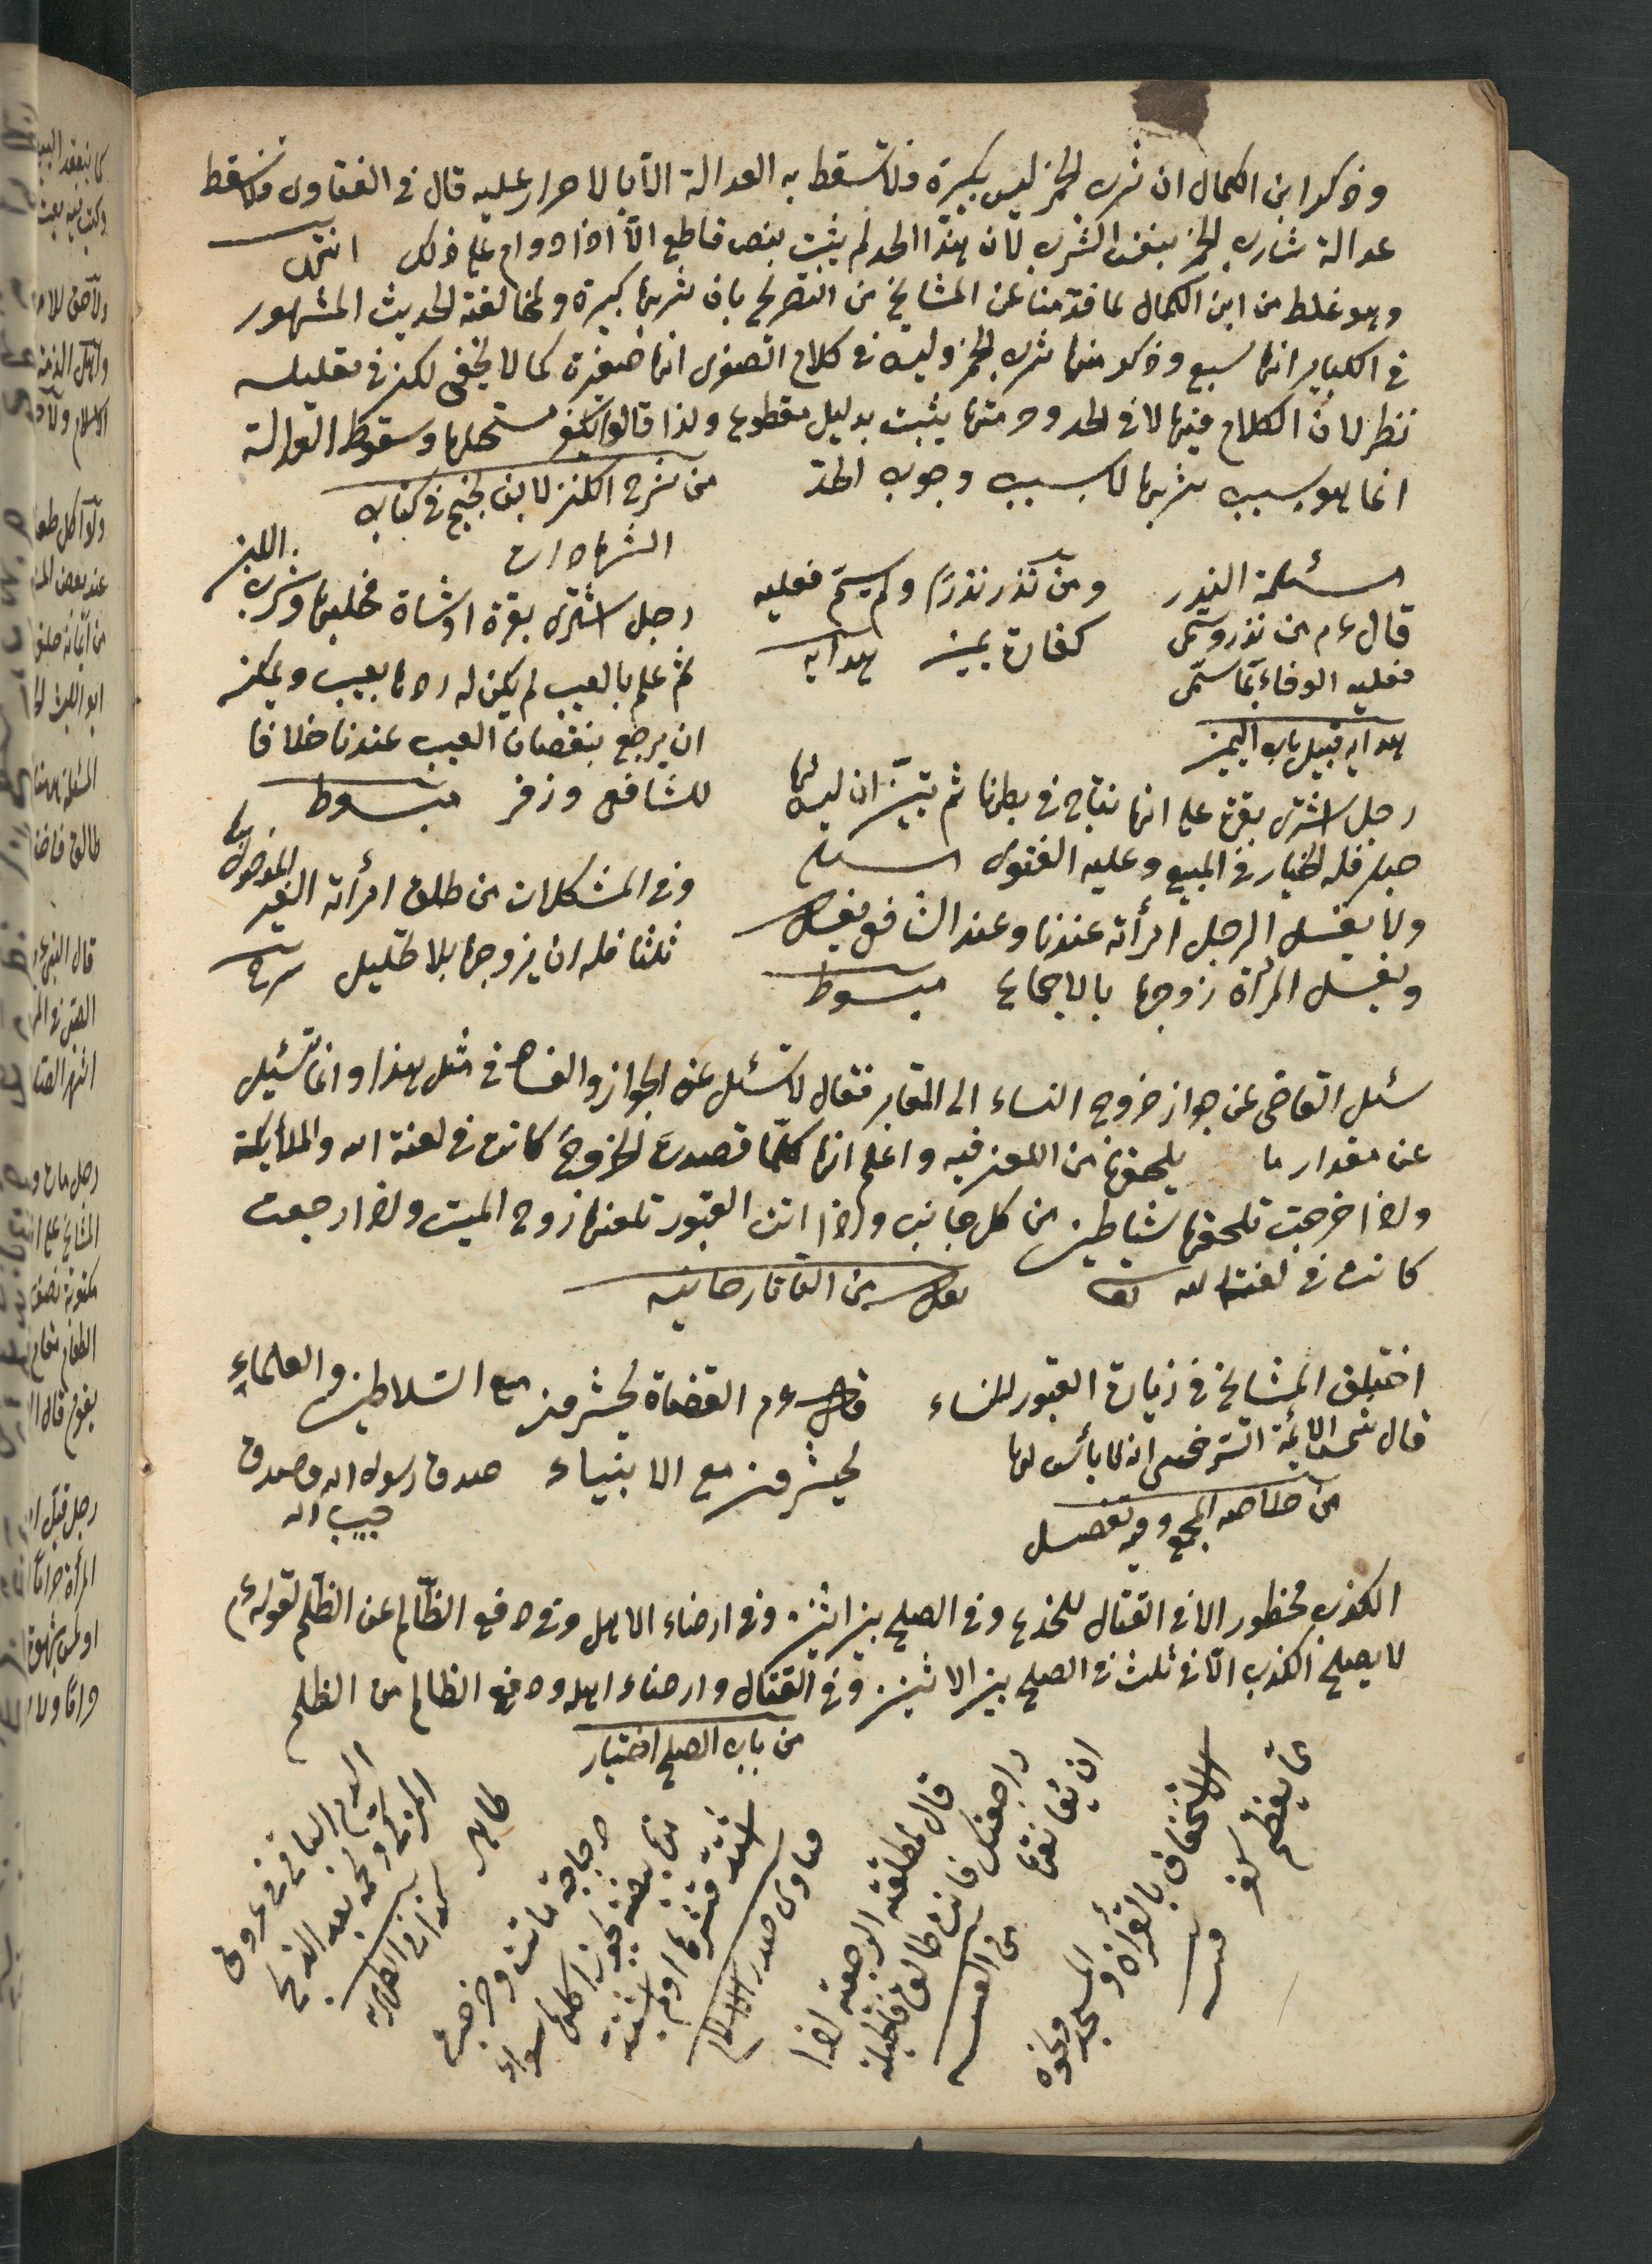 وذكر ابن الكمال ان شرب الخمر ليس بكبيرة فلا تسقط به العدالة الا بالاصرار عليه قال في الفتاوى ولا تسقط
عدالة شارب الخمر بنفس الشرب لان هذا الحد لم يثبت بنص قاطع الا اذا دوام على ذلك انتهى
وهو غلط من ابن الكمال لما قدمنا عن المشايخ من التصريح بان شربها كبيرة ولمخالفته الحديث المشهور
في الكباير انها سبع وذكر منها شرب الخمر وليس في كلام الصغرى انها صغيرة كما لا يخفى لكن في تعليله
نظر لان الكلام فيها لا في الحد وحرمتها يثبت بدليل مقطوع ولذا قالوا يكفر مستحلها وسقوط العدالة
انما هو بسبب شربها لا بسبب وجوب الحد من شرح الكنز لابن نجيم في كتاب
الشهادات
مسئلة النذر
قال ءم من نذر وسمى
فعليه الوفاء بما سمى
هدايه قبيل باب اليمين
ومن نذر نذرا ولم يسم فعليه
كفارة يمين هدايه
رجل اشترى بقرة او شاة فحلبها وشرب اللبن
ثم علم بالعيب لم يكن له ردها بعيب ويمكنه
ان يرجع بنقصان العيب عندنا خلافا
للشافعى وزفر مبسوط
رجل اشترى بقرة على انها نتاج في بطنها ثم تبين ان ليس لها
حبل فله الخيار في المبيع وعليه الفتوى
ولا يغسل الرجل امرأته عندنا وعند الشافعي يغسل
ويغسل المرأة زوجها بالاجماع مبسوط
وفي المشكلات من طلق امرأته الغير المدخول بها
ثلثا فله ان يزوجها بلا تحليل شرح
سئل القاضى عن جواز خروج النساء الى المقابر فقال لا تسئل عن الجواز والفساد في مثل هذا وانما تسئيل
عن مقدار ما يلحقها من اللعن فيه واعلم انها كلما قصدت الخروج كانت في لعنة الله والملائكة
واذا خرجت تلحقها شياطين من كل جانب واذا اتت القبور تلعنها روح الميت واذا رجعت
كانت في لعنة الله تعا نقل من التاتارخانيه
اختلف المشايخ في زيارة القبور للنساء
قال شمس الائمة السرخسى انه لا بأس لها
من خلاصه
قال ءم القضاة يحشرون مع السلاطين والعلماء
يحشرون مع الانبياء صدق رسول الله وصدق
حبيب الله
الكذب محظور الا في القتال للخدع وفي الصلح بين اثنين وفي ارضاء الاهل وفي دفع الظالم عن الظلم لقوله ءم
لا يصلح الكذب الا في ثلث في الصلح بين الاثنين وفي القتال وارضاء اهله ودفع الظالم من الظلم
من باب الصلح اختيار
الاستخفاف بالقرأن والمسجد ونحوه
مما يعظم كفر
قال لمطلقته الرجعية اذا
راجعتك فانت طالق فالحيلة
ان يعانقها
من القنيه
دجاجة ماتت وخرجت
منها بيضة يجوز اكلها سواء
اشتد قشرها او لم يشتد
فتاوى صدر الاسلام
الدم الباقى في عروق
المزكى ولحمه بعد الذبح
طاهر
كذا في الظهيريه